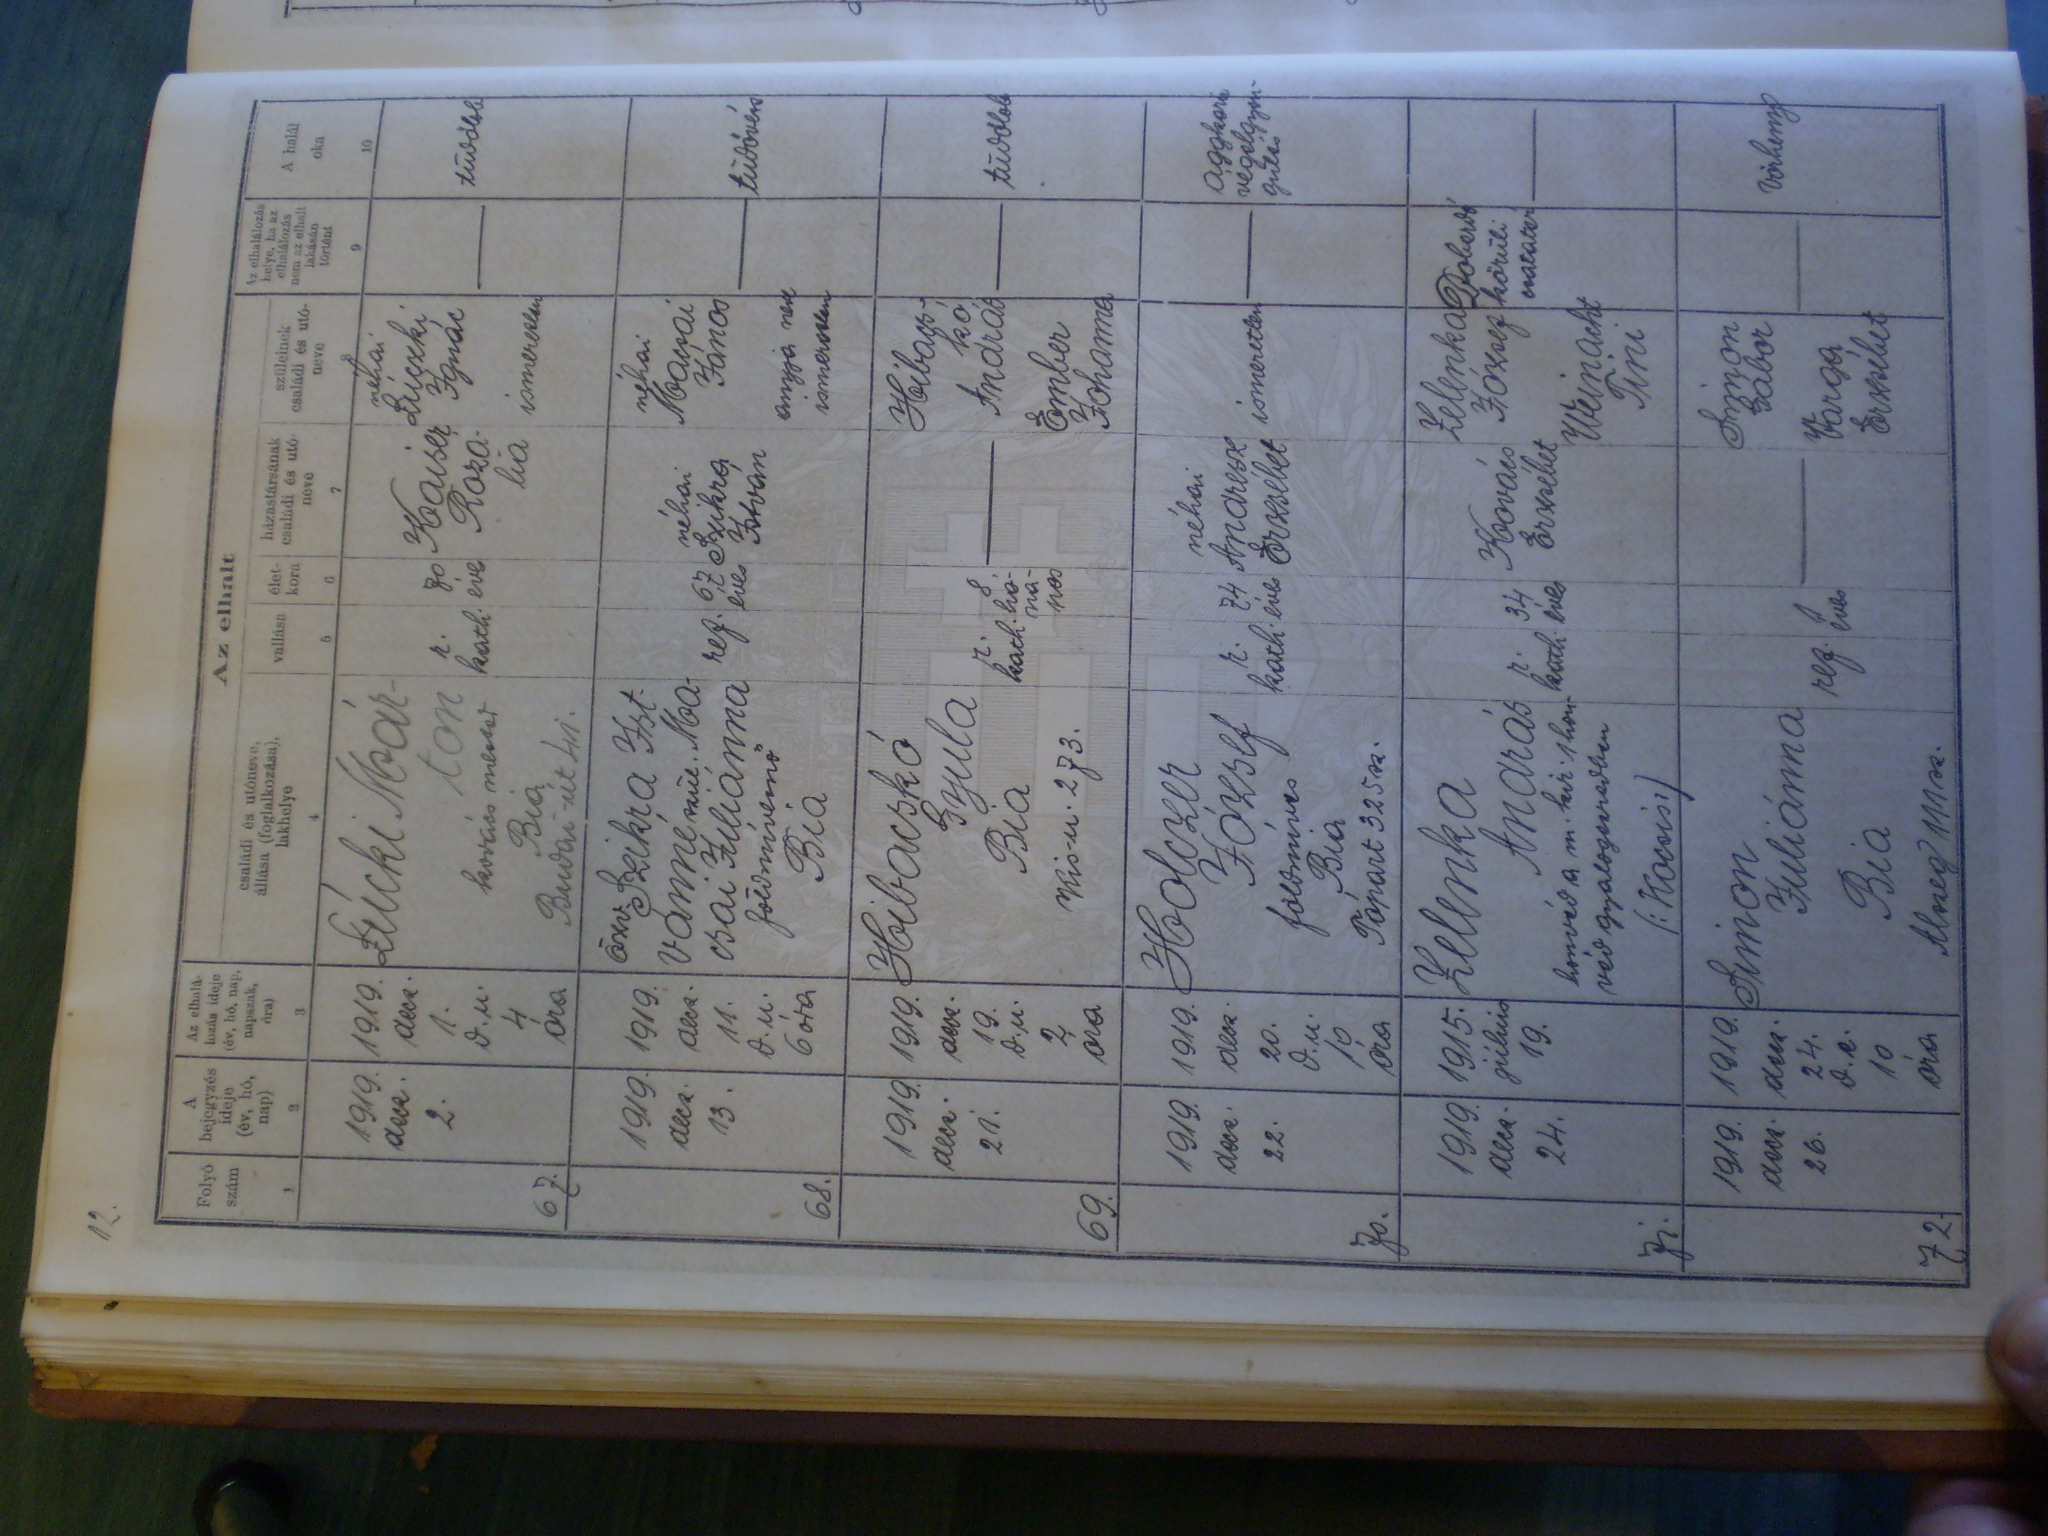 12.
Az elhalt
Folyó
szám
A
bejegyzés
ideje
(év, hó,
nap)
Az elhalá-
lozás ideje
(év, hó, nap,
napszak,
óra)
családi és utóneve,
állása (foglalkozása),
lakhelye
vallása
élet-
kora
házastársának
családi és utó-
neve
szüleinek
családi és utó-
neve
Az elhalálozás
helye, ha az
elhalálozás
nem az elhalt
lakásán
történt
A halál
oka
1
2
3
4
5
6
7
8
9
10
67.
1919.
decz.
2.
1919.
decz.
1.
d. u.
4
óra
Lúcki Már-
ton
kovács mester
Bia
Budai-út
r.
kath.
70
éves
Kaiser
Rozá-
lia
néhai
Lúczki
Ignác
ismeretlen
—
tüdőlob
68.
1919.
decz.
13.
1919.
decz.
11.
d. u.
6 óra
özv. Szikra Ist-
vánné szül. Ma-
csai Juliánna
földmívesnő
Bia
ref.
67
éves
néhai
Szikra
István
néhai
Macsai
János
anyja neve
ismeretlen
—
tüdővész
69.
1919.
decz.
21.
1919.
decz.
19.
d. u.
2
óra
Hibacskó
Gyula
Bia
Kis-u. 273.
r.
kath.
8
hó-
na-
pos
—
Hibacs-
kó
András
Ember
Johanna
—
tüdőlob
70.
1919.
decz.
22.
1919.
decz.
20.
d. u.
10
óra
Holczer
József
földmíves
Bia
Tópart 325 sz.
r.
kath.
74
éves
néhai
Andresz
Erzsébet
ismeretlen
—
Aggkori
végelgyen-
gülés
71.
1919.
decz.
24.
1915.
július
19.
Zelenka
András
honvéd a m. kir. 1 hon-
véd gyalogezredben
(: Kocsis :)
r.
kath.
34
éves
Kovács
Erzsébet
Zelenka
József
Weinacht
Tini
Doberdó
körüli
csatatér
—
72.
1919.
decz.
26.
1919.
decz.
24.
d. e.
10
óra
Simon
Juliánna
Bia
Alszeg 111 sz.
ref.
1
éves
—
Simon
Gábor
Varga
Erzsébet
—
vörheny